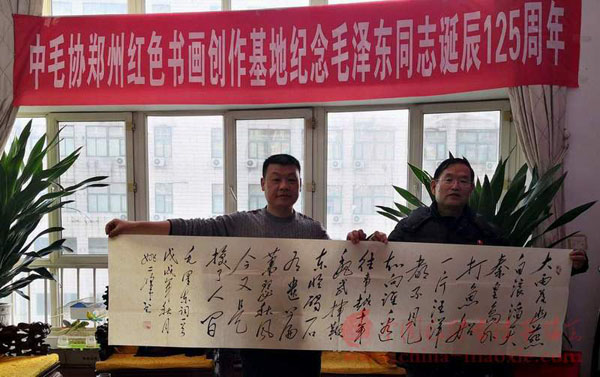 中毛协郑州红色书画创作基地纪念毛泽东同志诞辰125周年
大雨落幽燕
白浪滔天
秦皇岛外
打鱼船
一片汪洋
都不见
知向谁边
往事越千年
魏武挥鞭
东临碣石
有遗篇
萧瑟秋风
今又是
换了人间
毛泽东词
戊戌年秋月